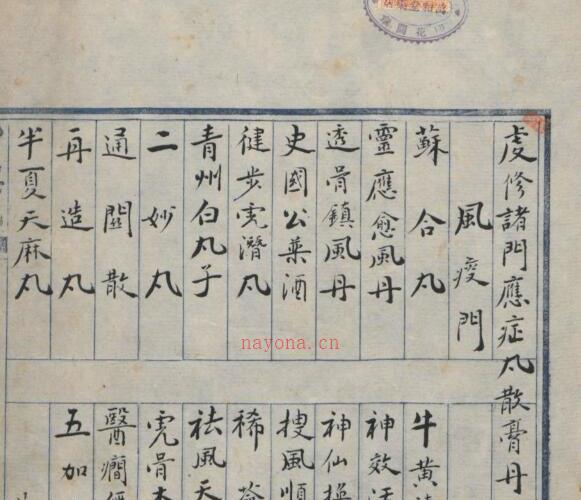 虔修諸門應症丸散膏丹
風痰門
蘇合丸
靈應愈風丹
透骨鎮風丹
史國公藥酒
健步虎潛丸
青州白丸子
二妙丸
通關散
再造丸
半夏天麻丸
牛黃
神效活
神仙換
搜風順
稀薟
祛風天
虎骨木
醫癇
五加
nayona.cn